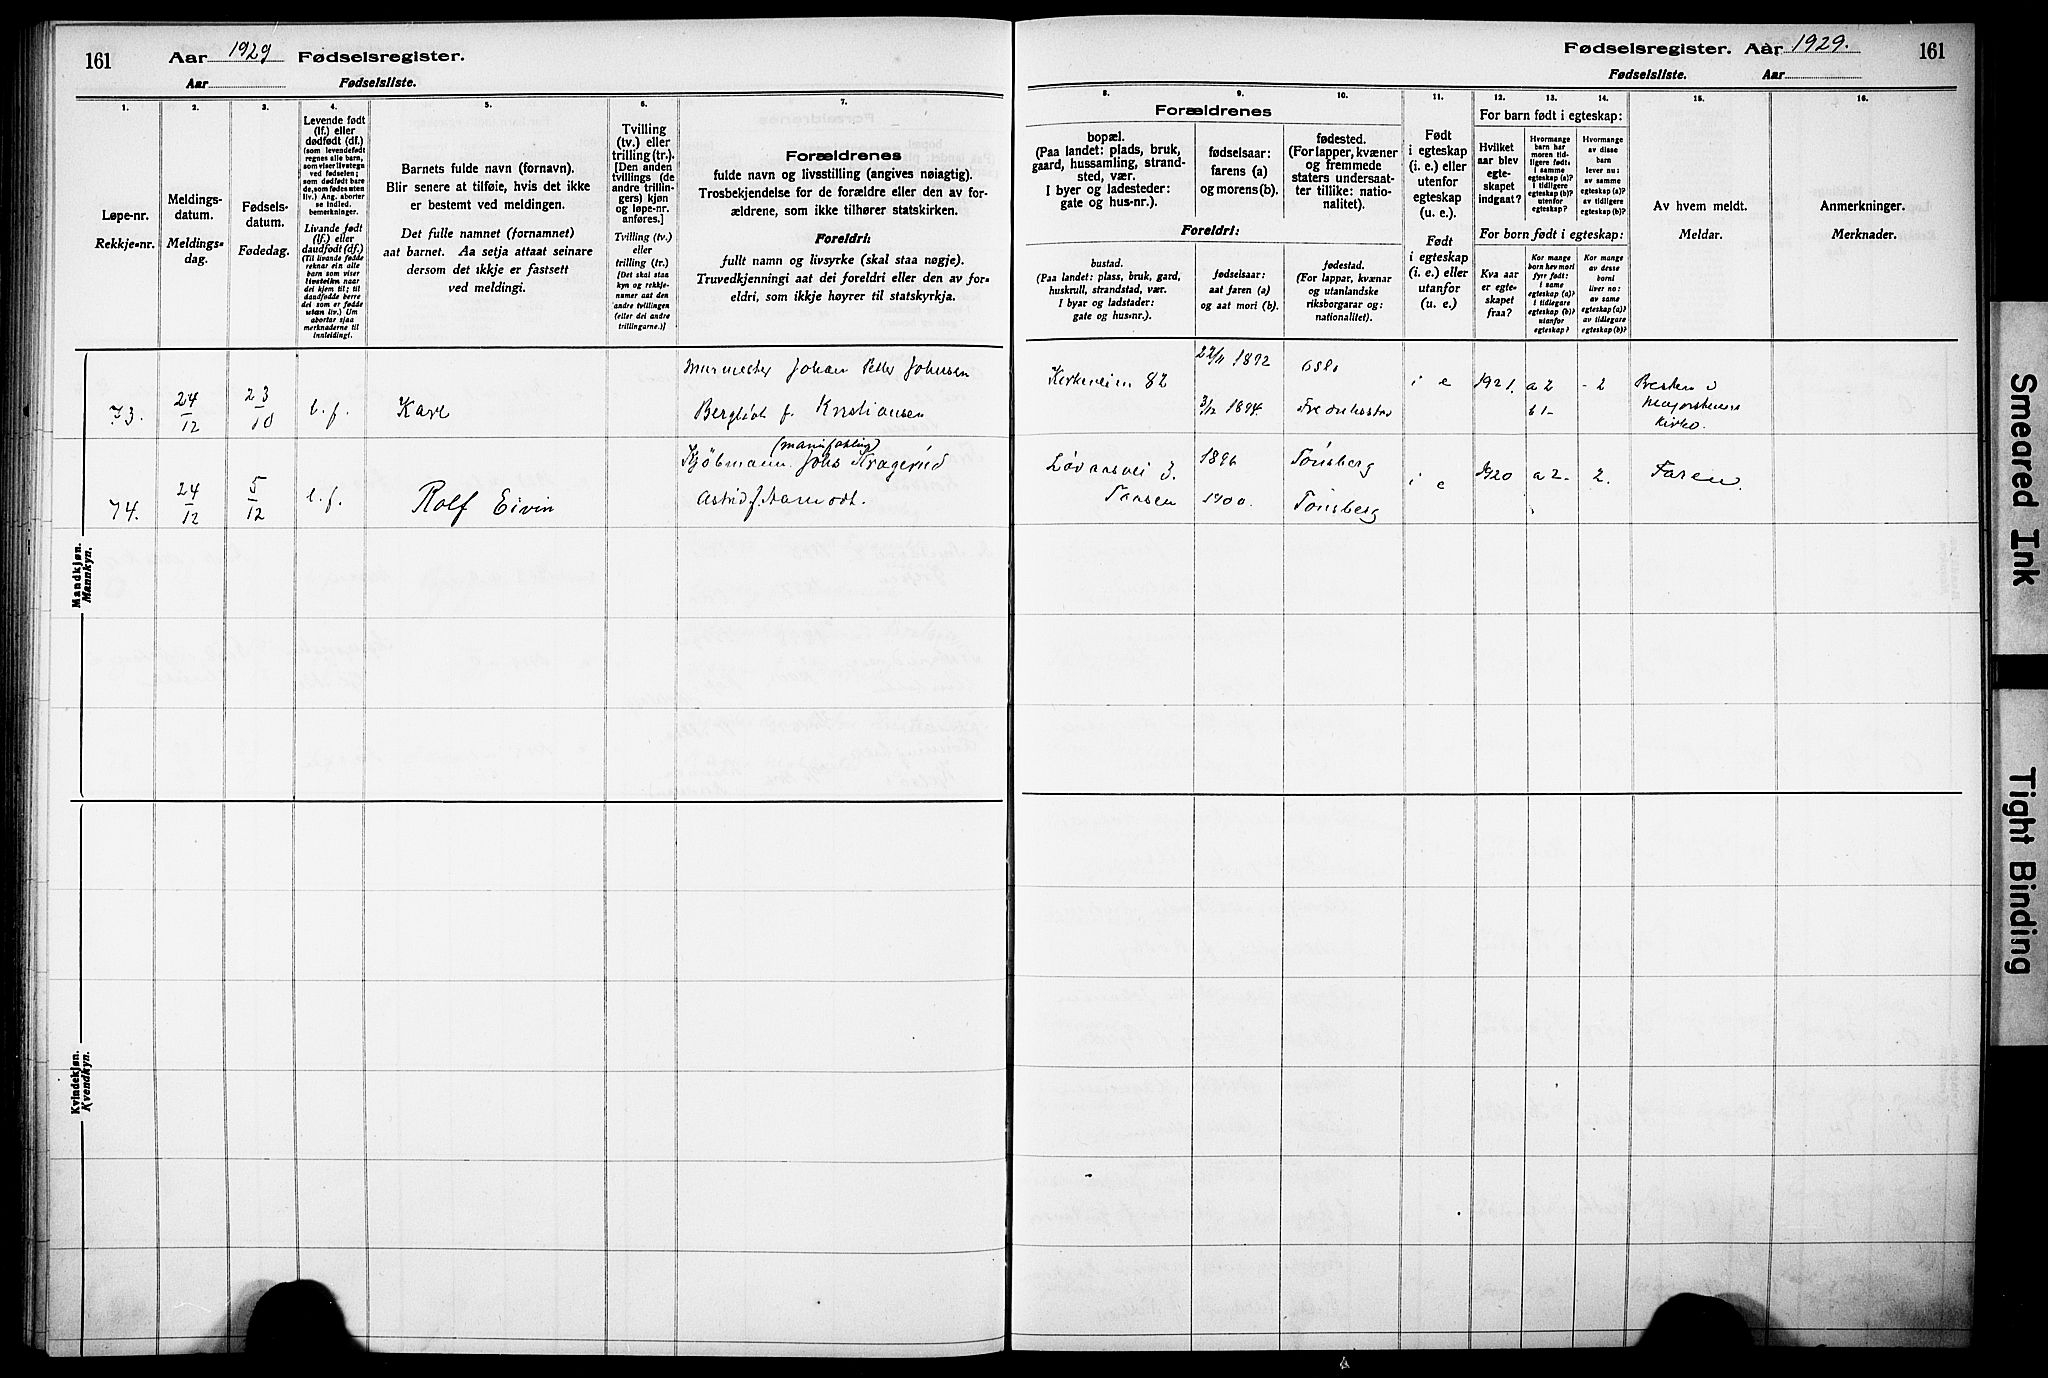 161
Aar 1929 Fødselsregister.
Aar Fødselsliste.
1.
2.
3.
4.
5.
6.
7.
Løpe-nr.
Rekkje-nr.
Meldings-
datum.
Meldings-
dag.
Fødsels-
datum.
Fødedag.
Levende født
(lf.) eller
dødfødt (df.)
(som levendefødt
regnes alle barn,
som viser livstegn
ved fødselen;
som dødfødt bare
de, som fødes uten
liv.) Ang. aborter
se indled.
bemerkninger.
Livande født
(lf.) eller
daudfødt (df.)
(Til livande fødde
reknar ein alle
barn som viser
livsteikn naar
dei kjem til; til
daudfødde berre
dei som er fødde
utan liv.) Um
abortar sjaa
merknaderne til
innleiding!.
Barnets fulde navn (fornavn).
Blir senere at tilføie, hvis det ikke
er bestemt ved meldingen.
Det fulle namnet (fornamnet)
aat barnet. Aa setja attaat seinare
dersom det ikkje er fastsett
ved meldingi.
Tvilling
(tv.) eller
trilling (tr.).
[Den anden
tvillings (de
andre trillin-
gers) kjøn
og løpe-nr.
anføres.]
Tvilling (tv.)
eller
trilling (tr.)
[Det skal staa
kyn og rekkje-
numer aat den
andre tvillingen
(eller dei andre
trillingarne.)]
Forældrenes
fulde navn og livsstilling (angives nøiagtig).
Trosbekjendelse for de forældre eller den av for-
ældrene, som ikke tilhører statskirken.
Foreldri:
fullt namn og livsyrke (skal staa nøgje).
Truvedkjenningi aat dei foreldri eller den av for-
eldri, som ikkje høyrer til statskyrkja.
Mandkjøn.
Mannkyn.
73.
24/12
23/10
l. f.
Karl
Murmester Johan Petter Johnsen
Bergljot f. Kristiansen
74.
24/12
5/12
l. f.
Rolf Eivin
Kjøbmann Johs Kragerud
Astrid f. Aamodt.
Kvindekjøn.
Kvendkyn.
Fødselsregister. Aar 1929.
161
Fødselsliste. Aar
8.
9.
10.
11.
12.
13.
14.
15.
16.
Forældrenes
bopæl.
(Paa landet: plads, bruk,
gaard, hussamling, strand-
sted, vær.
I byer og ladesteder:
gate og hus-nr.).
fødselsaar:
farens (a)
og morens (b).
fødested.
(For lapper, kvæner
og fremmede
staters undersaat-
ter tillike: natio-
nalitet).
Foreldri:
bustad.
(Paa landet: plass, bruk, gard,
huskrull, strandstad, vær.
I byar og ladstader:
gate og hus-nr.).
fødselsaar:
aat faren (a)
og aat mori (b).
fødestad.
(For lappar, kvænar
og utanlandske
riksborgarar og:
nationalitet).
Født
i egteskap
(i. e.) eller
utenfor
egteskap
(u. e.).
Født
i egteskap
(i. e.) eller
utanfor
(u. e.).
For barn født i egteskap:
Hvilket
aar blev
egte-
skapet
indgaat?
Hvormange
barn har
moren tid-
ligere født:
i samme
egteskap (a)?
i tidligere
egteskap (b)?
utenfor
egteskap?
Hvormange
av disse
barn
lever nu:
av samme
egteskap (a)?
av tidligere
egteskap (b)?
For born født i egteskap:
Kva aar
er egte-
skapet
fraa?
Kor mange
born hev mori
fyrr født:
i same
egteskap (a)?
i tidlegare
egteskap (b)?
utanfor
egteskap?
Kor mange
av desse
borni
liver no:
av same
egteskap (a)?
av tidlegare
egteskap (b)?
Av hvem meldt.
Meldar.
Anmerkninger.
Merknader.
Kirkeveien 82
27/11 1892
Oslo
3/12 1894.
Fredrikstad
i e
1921.
a 2
b 1 -
- 2
Presten i
Majorstuens
Kirke.
Løvaasvei 3.
Taasen
1896
Tønsberg
1900.
Tønsberg
i e
1920
a 2-
2.
Faren.
Smeared Ink
Tight Binding